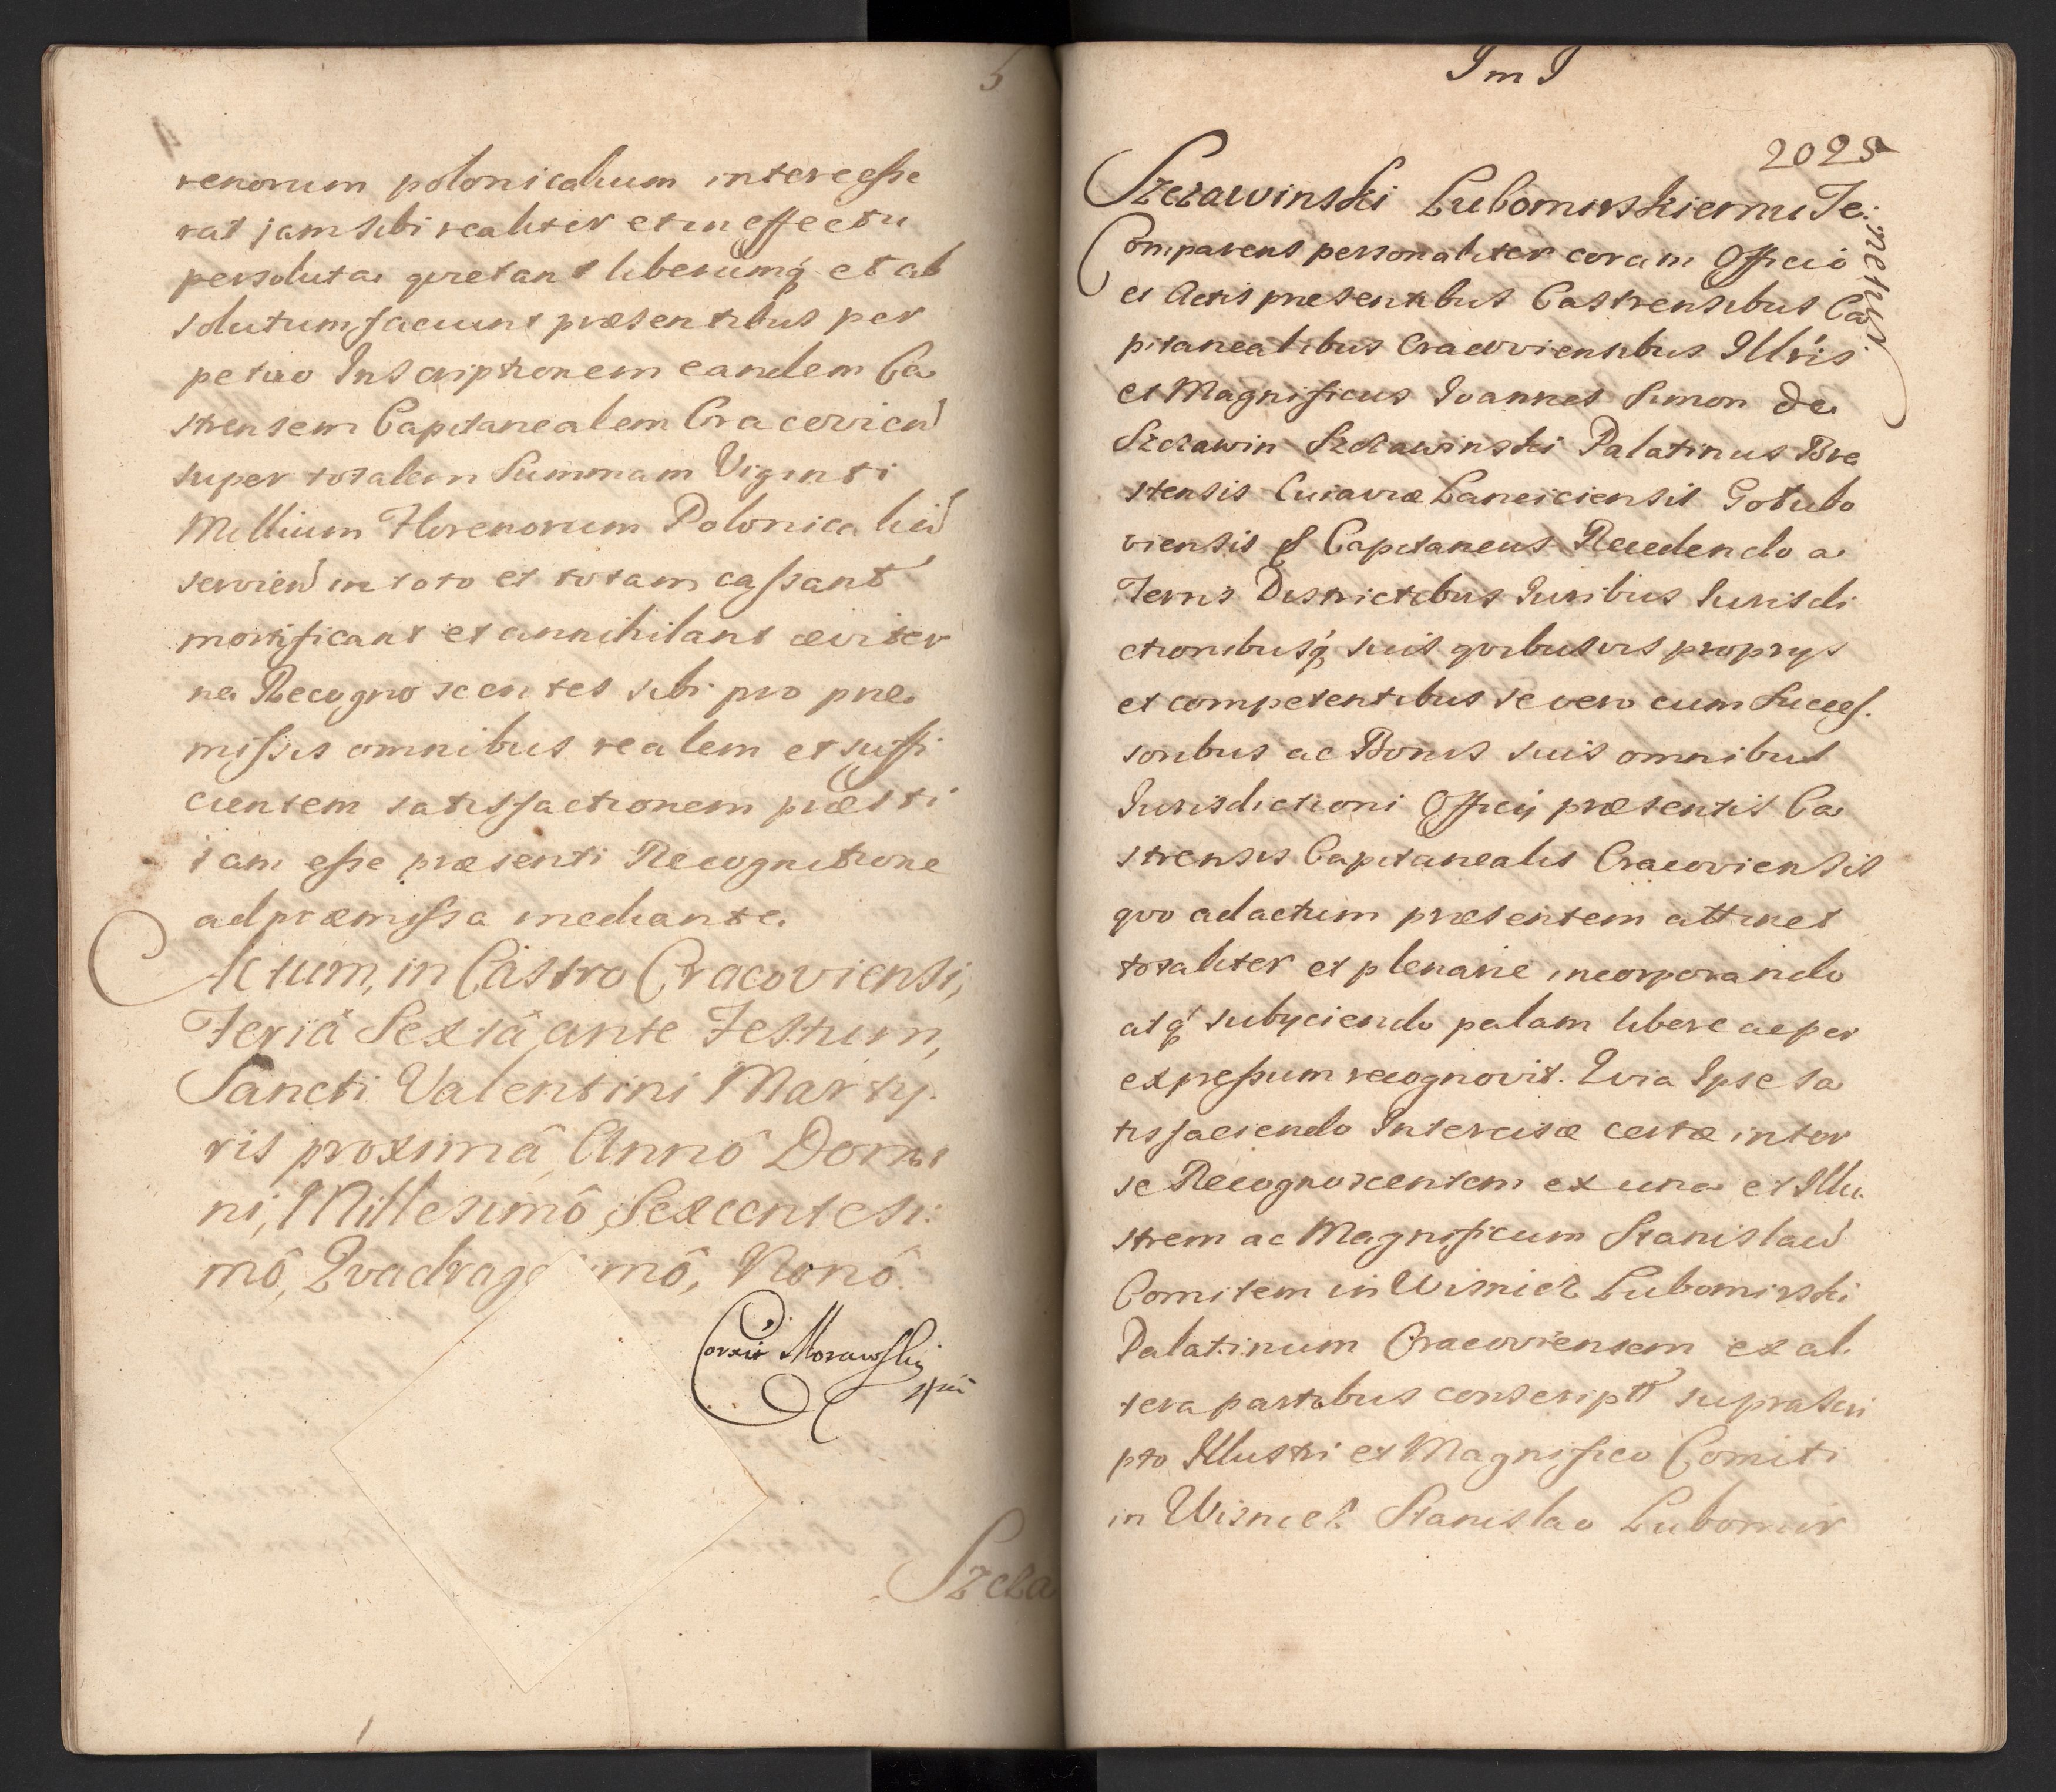 5
renorum polonicalium intereesse
rat jam sibi realiter et in effectu
persoluta quietant liberumq et ab
solutum faciunt præsentibus per
petuo Inscriptionem eandem Ca
strensem Capitanealem Cracovien
super totalem Summam Viginti
Millium Florenorum Polonicalien
servien in toto et totam cassant
mortificant et annihilant æviter
na Recognoscentes sibi pro præ
missis omnibus realem et suffi
cientem satisfactionem præsti
tam esse præsenti Recognitione
ad præmissa mediante.
Actum, in Castro Cracoviensi,
Feriâ Sextâ ante Festum,
Sancti Valentini Marty.
ris proximâ Annô Domi
ni, Millesimô, Sexcentesi:
mô, Qvadrage mô, Nonô.
Morawski
Szcza
JmJ
2025
Szczawinski Lubomirskiemu Te:
netur.
Comparens personaliter coram Officio
et Actis præsentibus Castrensibus Ca
pitanealibus Cracoviensibus Illris
et Magnificus Joannes Simon de
Szczawin Szczawinski Palatinus Bre
stensis Cuiaviæ Lanciciensis Gotubo
viensis & Capitaneus Recedendo a
Terris Districtibus Iuribus Iurisdi
ctionibusq suis qvibusvis proprys
et competentibus se vero cum Succes.
soribus ac Bonis suis omnibus
Iurisdictioni Officij præsentis Ca
strensis Capitanealis Cracoviensis
qvo ad actum præsentem attinet
totaliter et plenarie incorporando
atq subyciendo palam libere ac per
expressum recognovit. Qvia Ipse sa
tisfaciendo Intercisæ certæ inter
se Recognoscentem ex una et Illu.
strem ac Magnificum Stanislaum
Comitem in Wisnicz Lubomirski
Palatinum Cracoviensem ex al.
tera partibus conscriptæ suprascri
pto Illustri et Magnifico Comiti
in Wisnicz Stanislao Lubomir